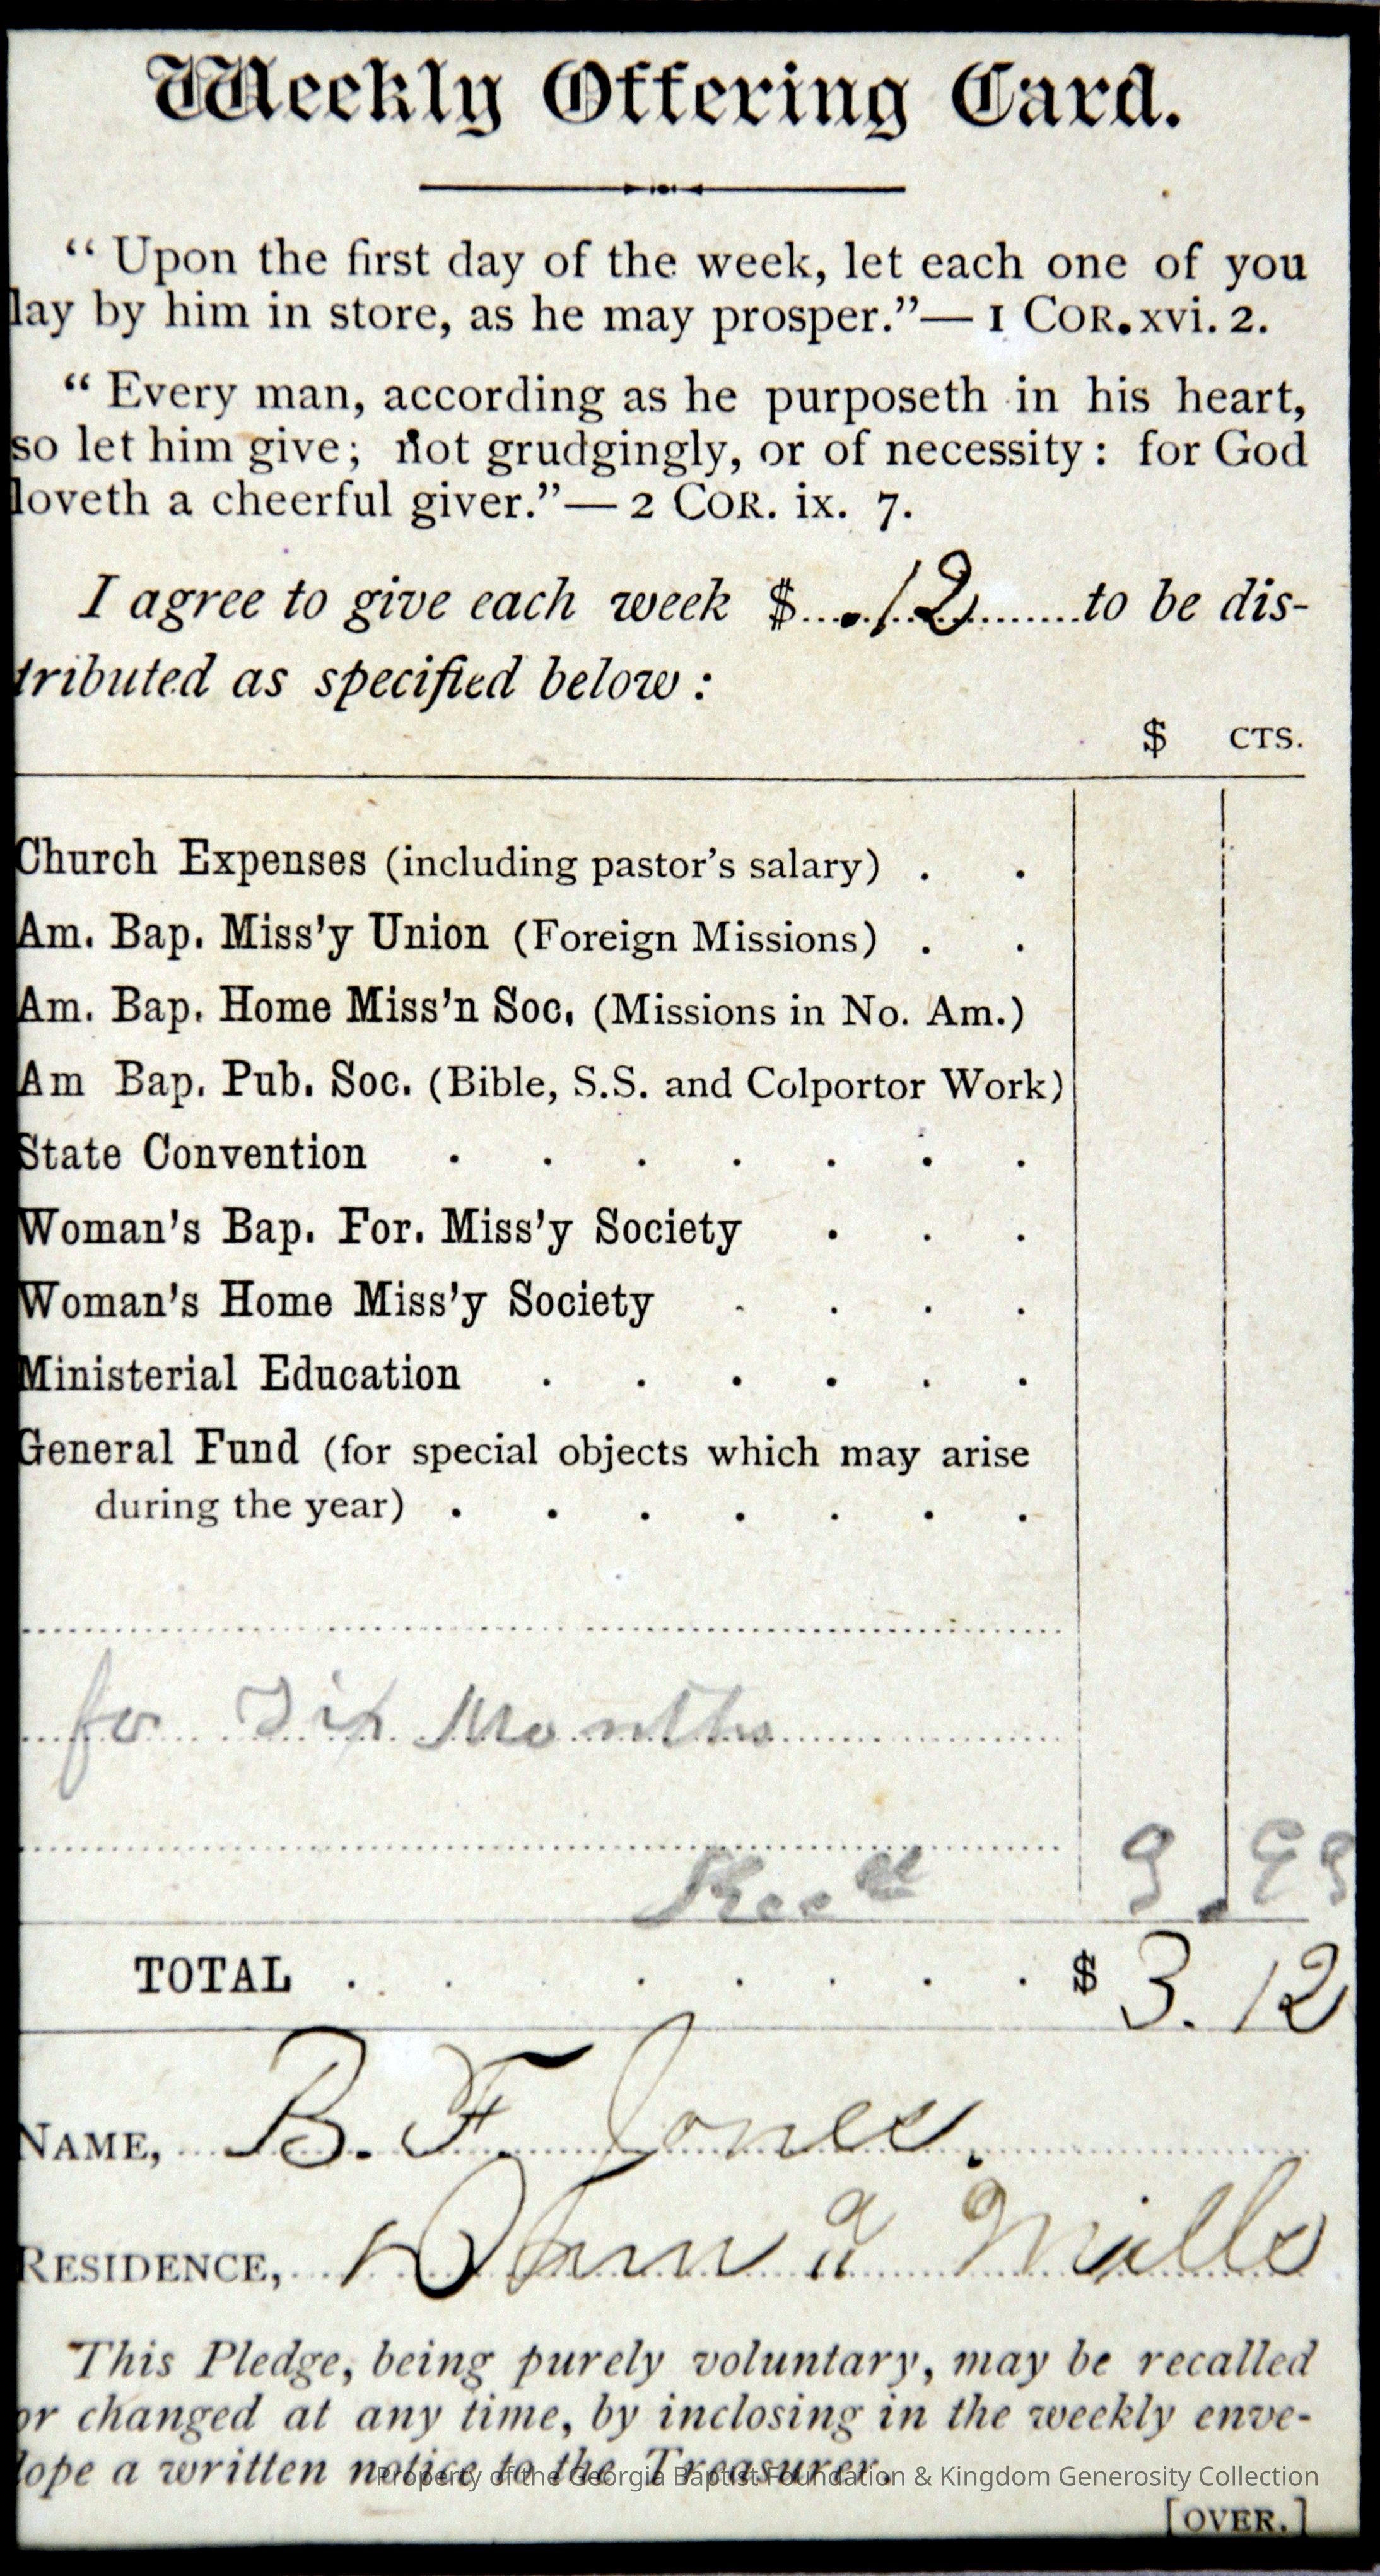 Weekly Offering Card.
“ Upon the first day of the week, let each one of you
lay by him in store, as he may prosper.”— 1 COR. xvi. 2.
“ Every man, according as he purposeth in his heart,
so let him give; not grudgingly, or of necessity: for God
loveth a cheerful giver.”— 2 COR. ix. 7.
I agree to give each week $ .12 to be dis-
tributed as specified below :
$ CTS.
Church Expenses (including pastor’s salary) . .
Am. Bap. Miss’y Union (Foreign Missions) . .
Am. Bap. Home Miss’n Soc. (Missions in No. Am.)
Am Bap. Pub. Soc. (Bible, S.S. and Colportor Work)
State Convention . . . . . . .
Woman’s Bap. For. Miss’y Society . . .
Woman’s Home Miss’y Society . . . .
Ministerial Education . . . . . .
General Fund (for special objects which may arise
during the year) . . . . . . .
for Six Months
Recd
TOTAL . . . . . . . . $ 3.12
NAME, B. F. Jones.
RESIDENCE, Mills
This Pledge, being purely voluntary, may be recalled
or changed at any time, by inclosing in the weekly enve-
lope a written notice to the Treasurer.
Property of the Georgia Baptist Foundation & Kingdom Generosity Collection
[OVER.]